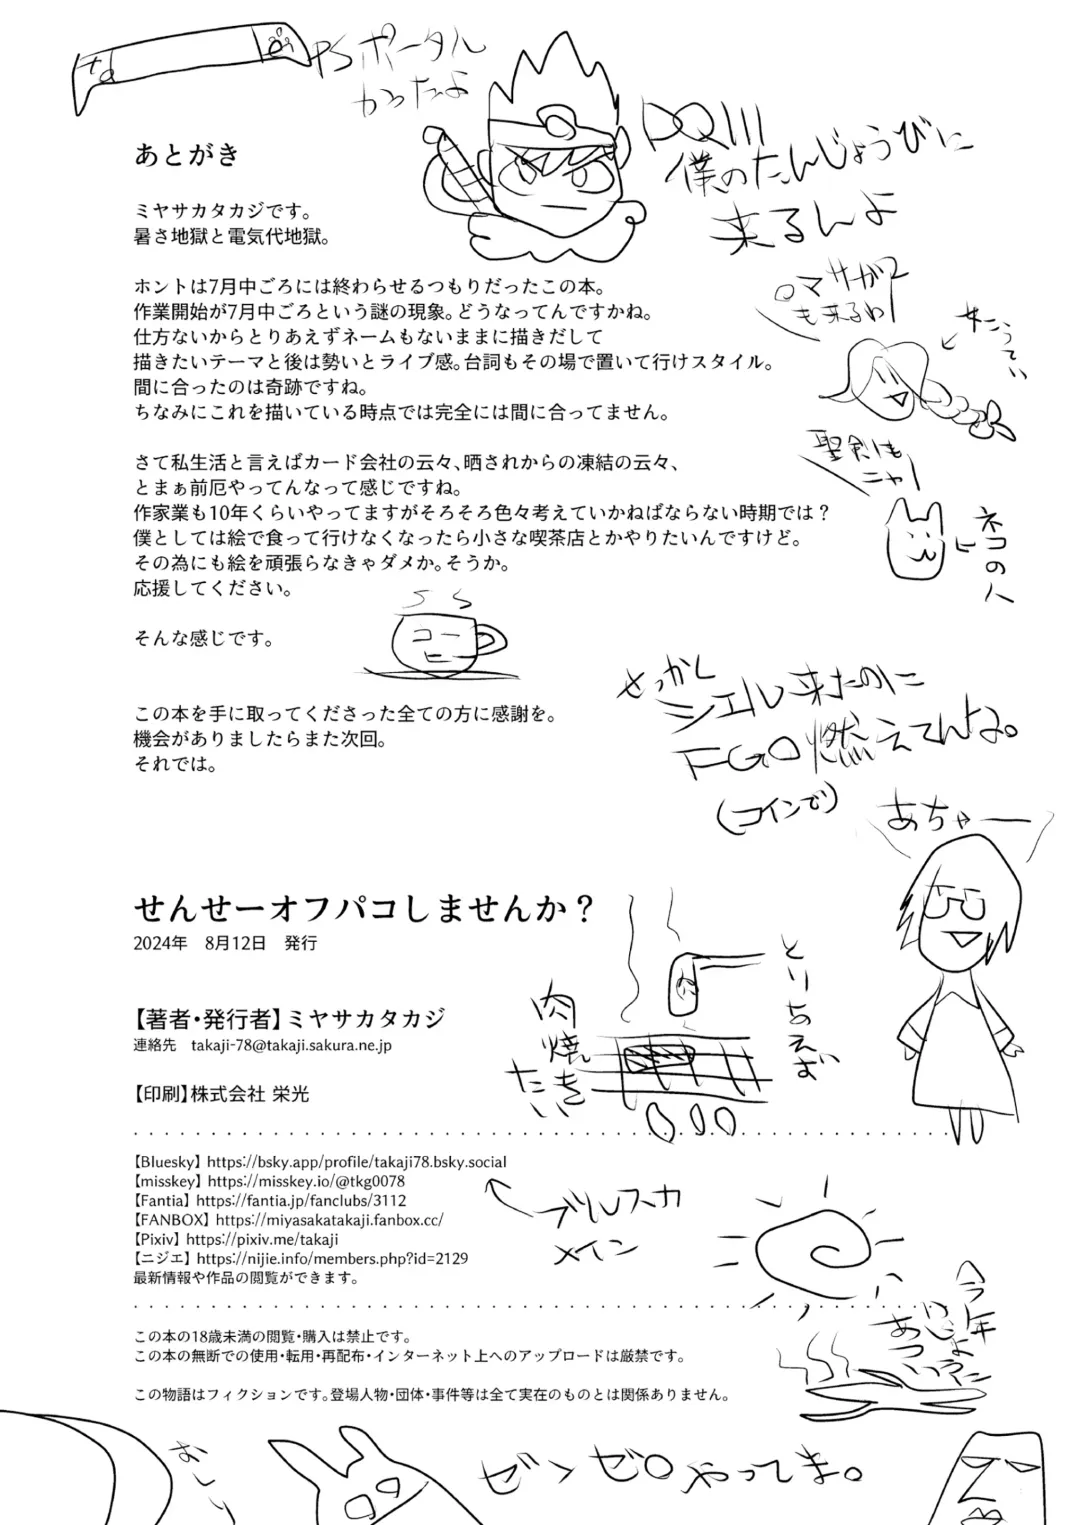 PSポータル
かったよ
DQIII
僕のたんじょうびに
来るんよ
あとがき
ミヤサカタカジです。
暑さ地獄と電気代地獄。
ホントは7月中ごろには終わらせるつもりだったこの本。
作業開始が7月中ごろという謎の現象。どうなってんですかね。
仕方ないからとりあえずネームもないままに描きだして
描きたいテーマと後は勢いとライブ感。台詞もその場で置いて行けスタイル。
間に合ったのは奇跡ですね。
ちなみにこれを描いている時点では完全には間に合ってません。
ロマサガ2
も来るわ
聖剣も
ニャー
ネコの人
さて私生活と言えばカード会社の云々、晒されからの凍結の云々、
とまぁ前厄やってんなって感じですね。
作家業も10年くらいやってますがそろそろ色々考えていかねばならない時期では？
僕としては絵で食って行けなくなったら小さな喫茶店とかやりたいんですけど。
その為にも絵を頑張らなきゃダメか。そうか。
応援してください。
そんな感じです。
せっかく
シエル来たのに
FGO燃えてんな。
(コインで)
この本を手に取ってくださった全ての方に感謝を。
機会がありましたらまた次回。
それでは。
あちゃー
せんせーオフパコしませんか？
2024年　8月12日　発行
とりあえず
肉焼き
たい
【著者・発行者】ミヤサカタカジ
連絡先　takaji-78@takaji.sakura.ne.jp
【印刷】株式会社 栄光
【Bluesky】https://bsky.app/profile/takaji78.bsky.social
【misskey】https://misskey.io/@tkg0078
【Fantia】https://fantia.jp/fanclubs/3112
【FANBOX】https://miyasakatakaji.fanbox.cc/
【Pixiv】https://pixiv.me/takaji
【ニジエ】https://nijie.info/members.php?id=2129
最新情報や作品の閲覧ができます。
ブルスカ
メイン
今年
この本の18歳未満の閲覧・購入は禁止です。
この本の無断での使用・転用・再配布・インターネット上へのアップロードは厳禁です。
この物語はフィクションです。登場人物・団体・事件等は全て実在のものとは関係ありません。
おしり
ゼンゼロやってま。